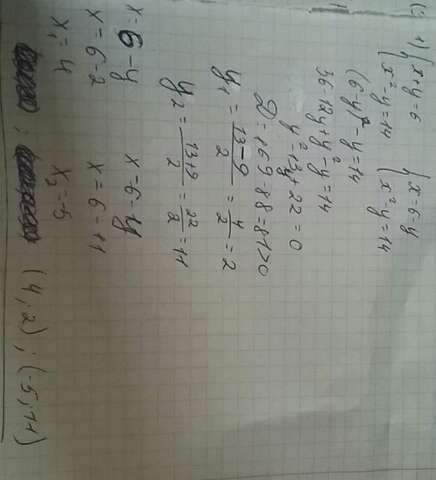 1) { x+y=6 { x=6-y
x²-y=14 x²-y=14
(6-y)²-y=14
36-12y+y²-y=14
y²-13y+22=0
D=169-88=81>0
y₁=13-9/2=4/2=2
y₂=13+9/2=22/2=11
x=6-y x=6-y
x=6-2 x=6-11
x₁=4 x₂=-5
; (4;2);(-5;11)